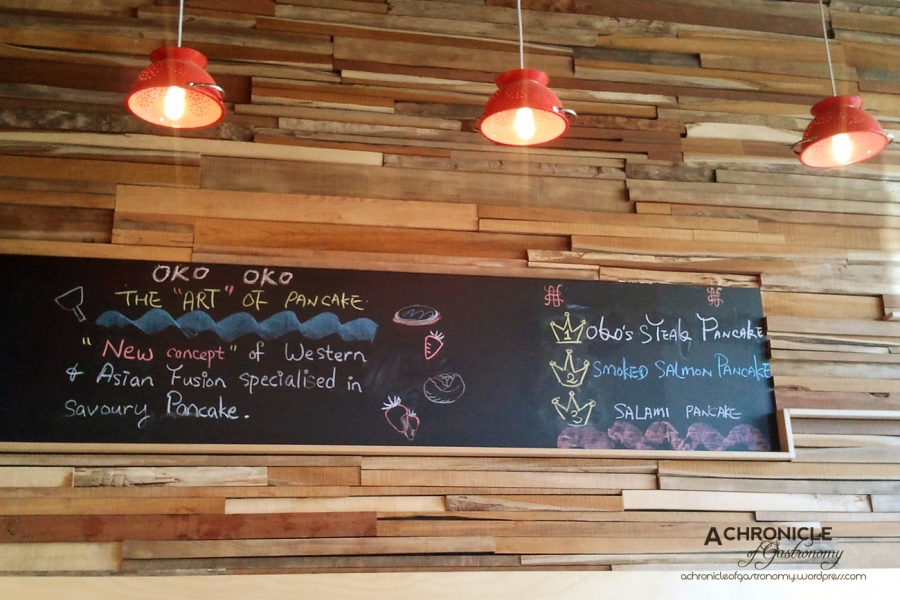 OKO OKO
THE "ART" OF PANCAKE.
"New concept" of Western
& Asian Fusion specialised in
savoury Pancake.
1 Oko's STEAK PANCAKE
2 SMOKED SALMON PANCAKE
3 SALAMI PANCAKE
A CHRONICLE
of Gastronomy
achronicleofgastronomy.wordpress.com